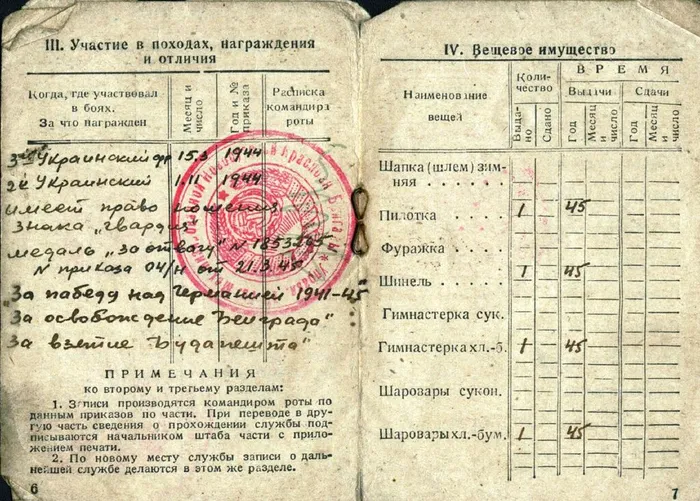 III. Участие в походах, награждения
и отличия
Когда, где участвовал
в боях.
За что награжден
Месяц и
число
Год и №
приказа
Расписка
командира
роты
3й Украинский фр 15.3 1944
2й Украинский 1.11 1944
имеет право ношения
знака „гвардия"
медаль „За отвагу" N 1853265
N приказа 04/н от 21.3.45
„За победу над Германией 1941-45"
За освобождение Белграда"
За взятие Будапешта"
ПРИМЕЧАНИЯ
ко второму и третьему разделам:
1. Записи производятся командиром роты по
данным приказов по части. При переводе в дру-
гую часть сведения о прохождении службы под-
писываются начальником штаба части с прило-
жением печати.
2. По новому месту службы записи о даль-
нейшей службе делаются в этом же разделе.
6
IV. Вещевое имущество
Наименование
вещей
Коли-
чество
Выда-
но
Сдано
ВРЕМЯ
Выдачи
Сдачи
Год
Месяц
и число
Год
Месяц
и число
Шапка (шлем) зим-
няя . . . . . .
Пилотка . . . . . 1 45
Фуражка . . . . .
Шинель . . . . . 1 45
Гимнастерка сук.
Гимнастерка хл.-б. 1 45
Шаровары сукон.
Шаровары хл.-бум. 1 45
7